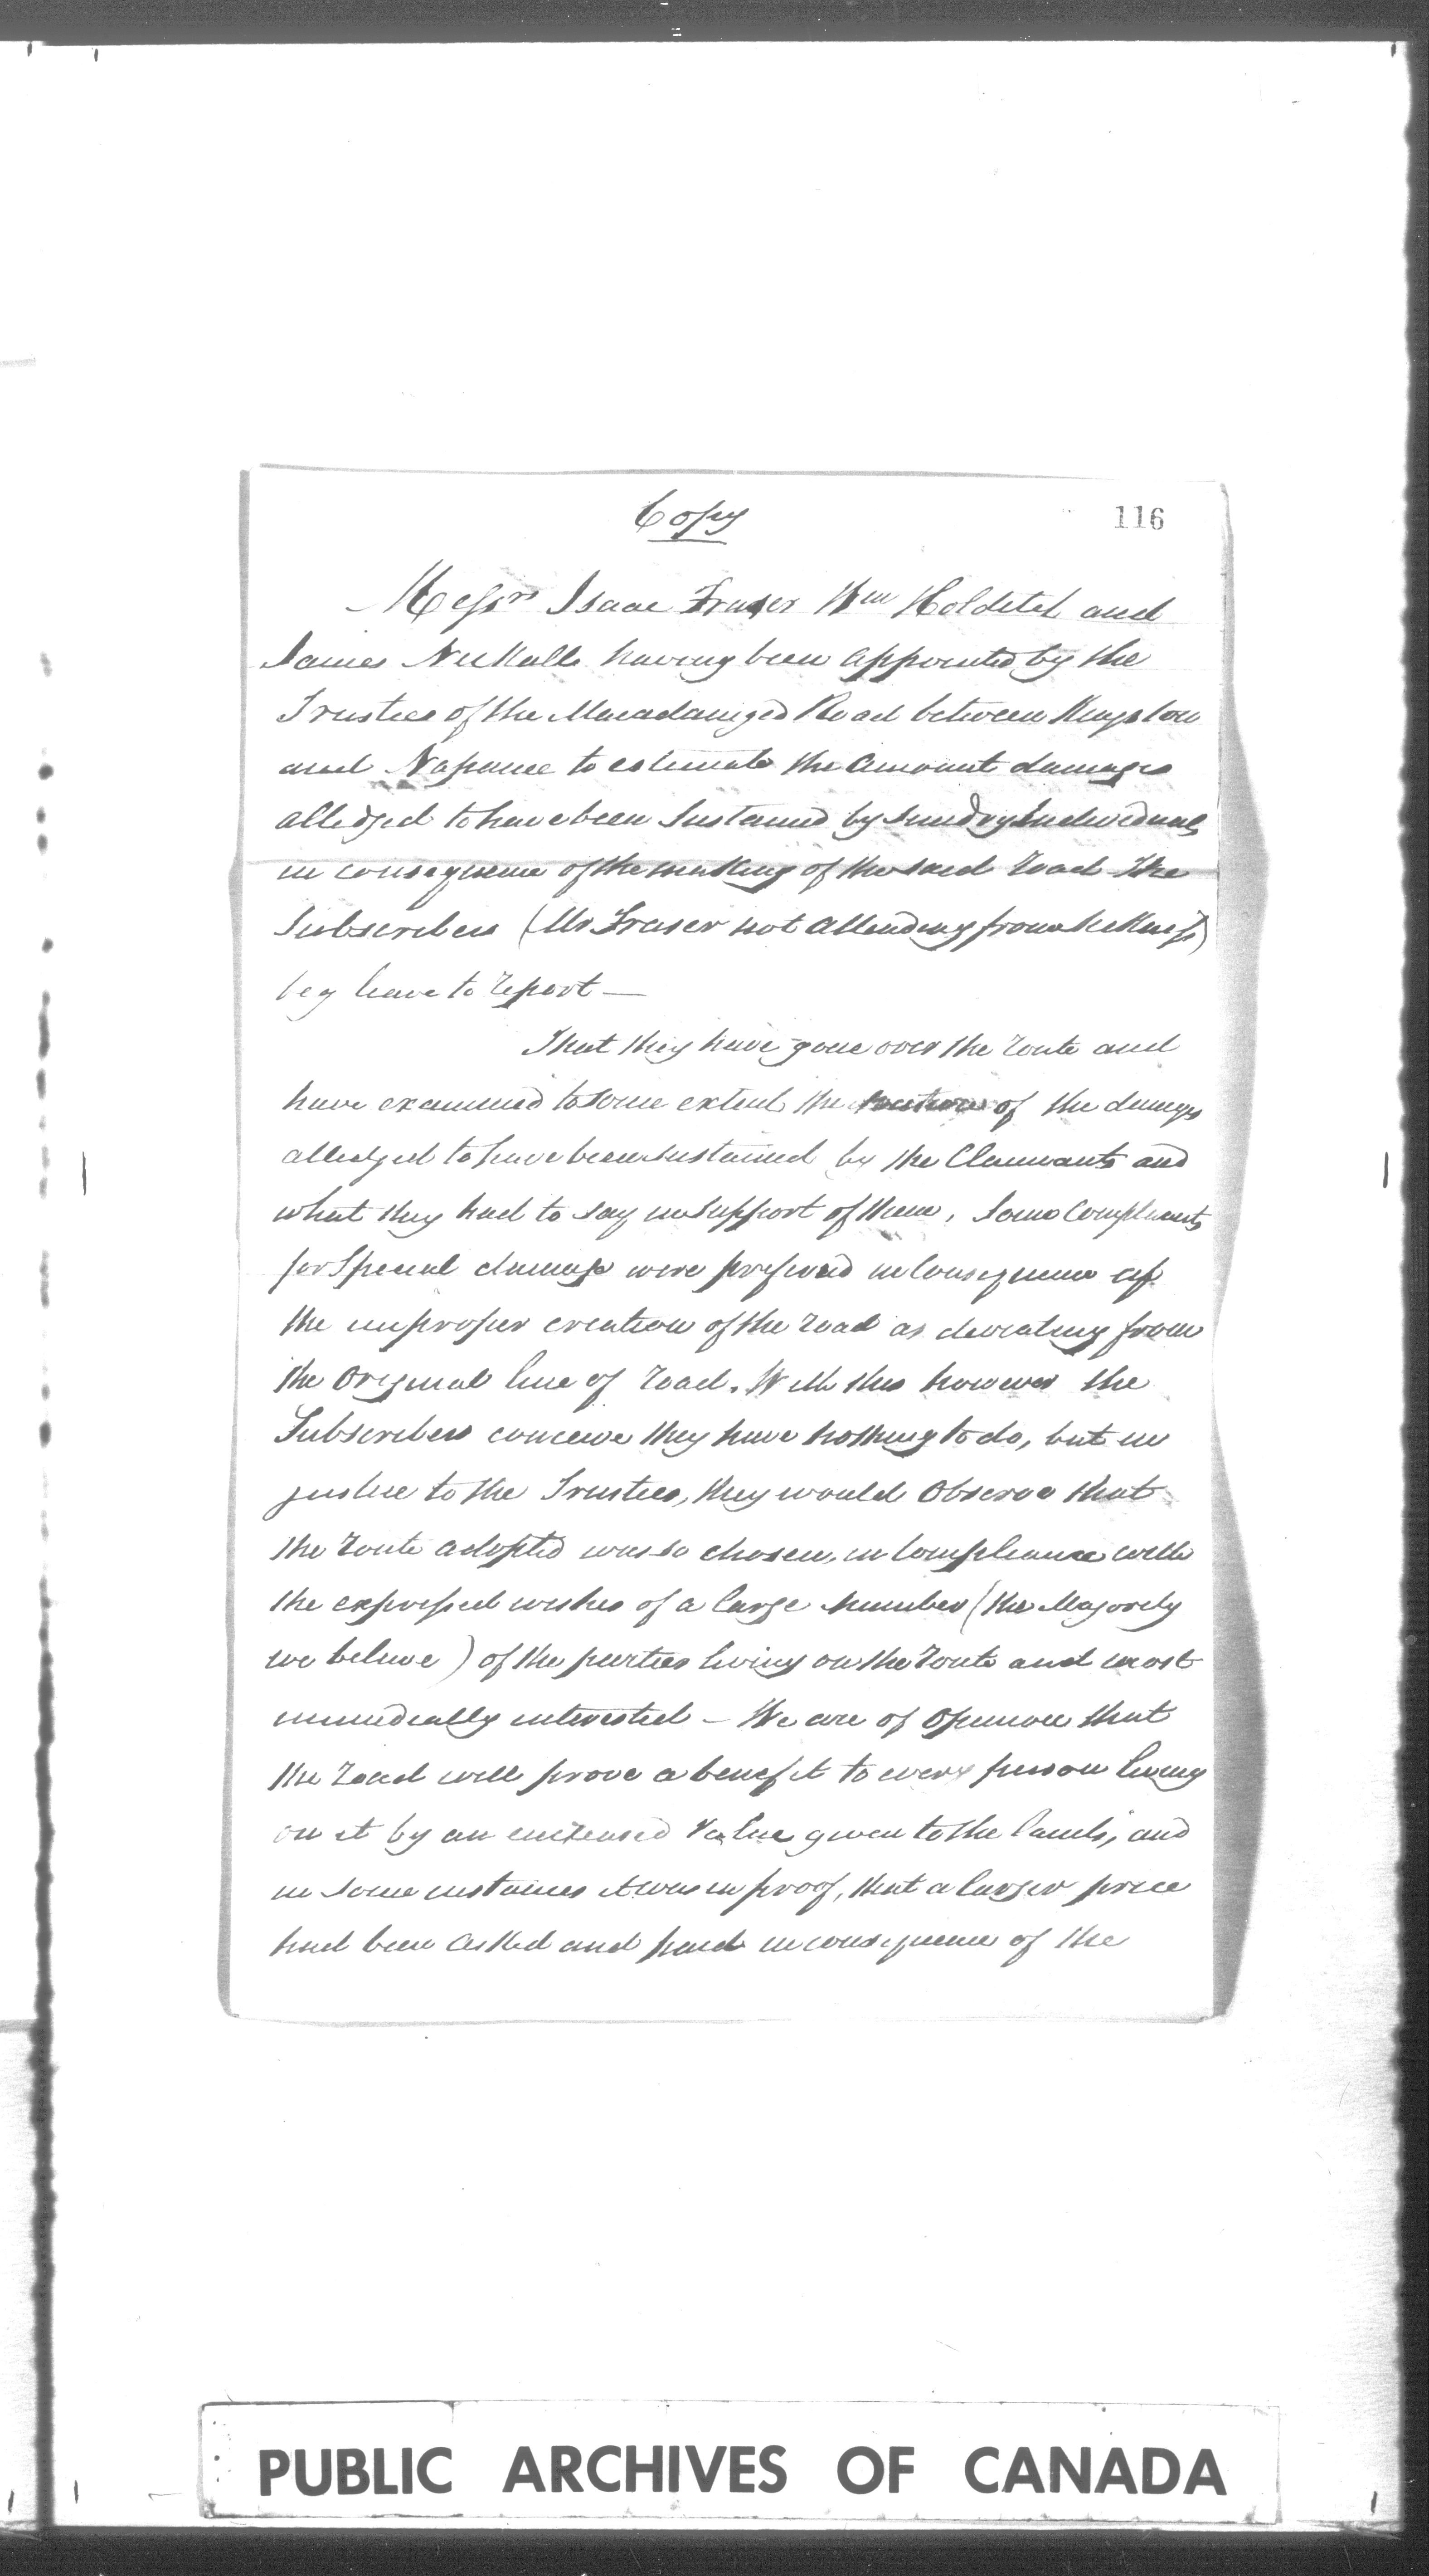 Copy
116
Messrs Isaac Fraser Wm Holditch and
James Nickalls having been appointed by the
Trustees of the Macadamized Road between Kingston
and Napanee to estimate the amount damages
alledged to have been Sustained by Sundry Individuals
in consequence of the making of the said road The
Subscribers (Mr Fraser not attending from sickness)
beg leave to report —
That they have gone over the route and
have examined to some extent the nature of the damages
alledged to have been sustained by the Claimants and
what they had to say in support of them, Some Complaints
for Special damage were preferred in Consequence of
the improper creation of the road as deviating from
the Original line of road. With this however the
Subscribers conceive they have nothing to do, but in
justice to the Trustees, they would Observe that
the route adopted was so chosen, in Compliance with
the expressed wishes of a large number (the Majority
we believe) of the parties living on the route and most
immediately interested - We are of Opinion that
the road will prove a benefit to every person living
on it by an increased Value given to the lands, and
in some instances it was in proof, that a larger price
had been asked and paid in consequence of the
PUBLIC ARCHIVES OF CANADA